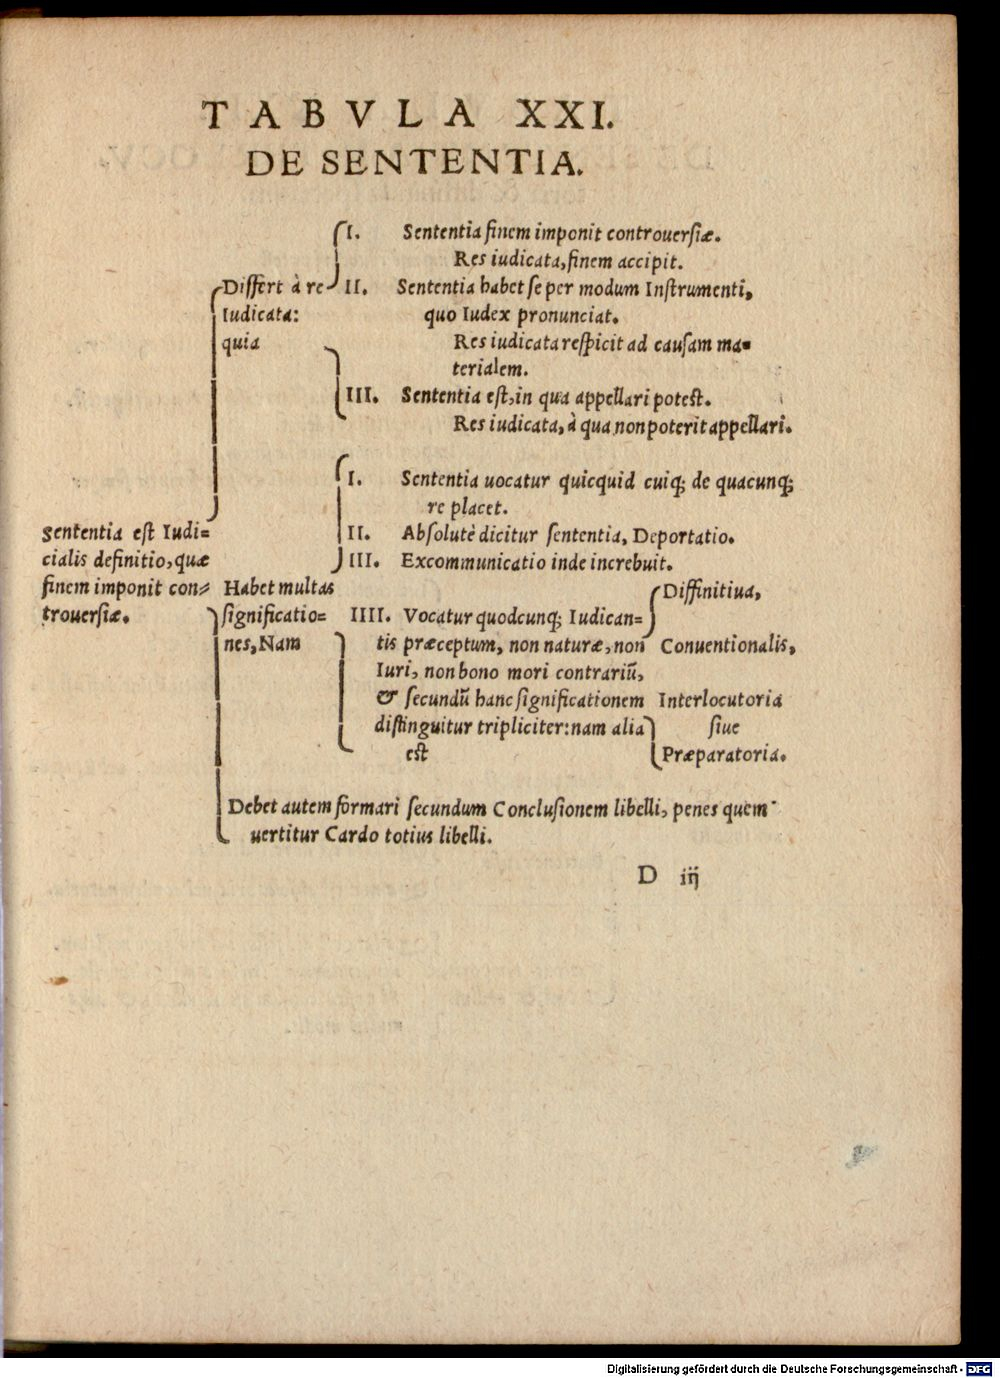 TABVLA XXI.
DE SENTENTIA.
I. Sententia finem imponit controuersiæ.
Res iudicata, finem accipit.
Differt à re II. Sententia habet se per modum Instrumenti,
Iudicata: quo Iudex pronunciat.
quia Res iudicata respicit ad causam ma=
terialem.
III. Sententia est, in qua appellari potest.
Res iudicata, à qua non poterit appellari.
I. Sententia uocatur quicquid cuiq; de quacunq;
re placet.
Sententia est Iudi= II. Absolutè dicitur sententia, Deportatio.
cialis definitio, quæ III. Excommunicatio inde increbuit.
finem imponit con= Habet multas Diffinitiua,
trouersiæ. significatio= IIII. Vocatur quodcunq; Iudican=
nes, Nam tis præceptum, non naturæ, non Conuentionalis,
Iuri, non bono mori contrariũ,
& secundũ hanc significationem Interlocutoria
distinguitur tripliciter: nam alia siue
est Præparatoria.
Debet autem formari secundum Conclusionem libelli, penes quem
uertitur Cardo totius libelli.
D iij
Digitalisierung gefördert durch die Deutsche Forschungsgemeinschaft - DFG